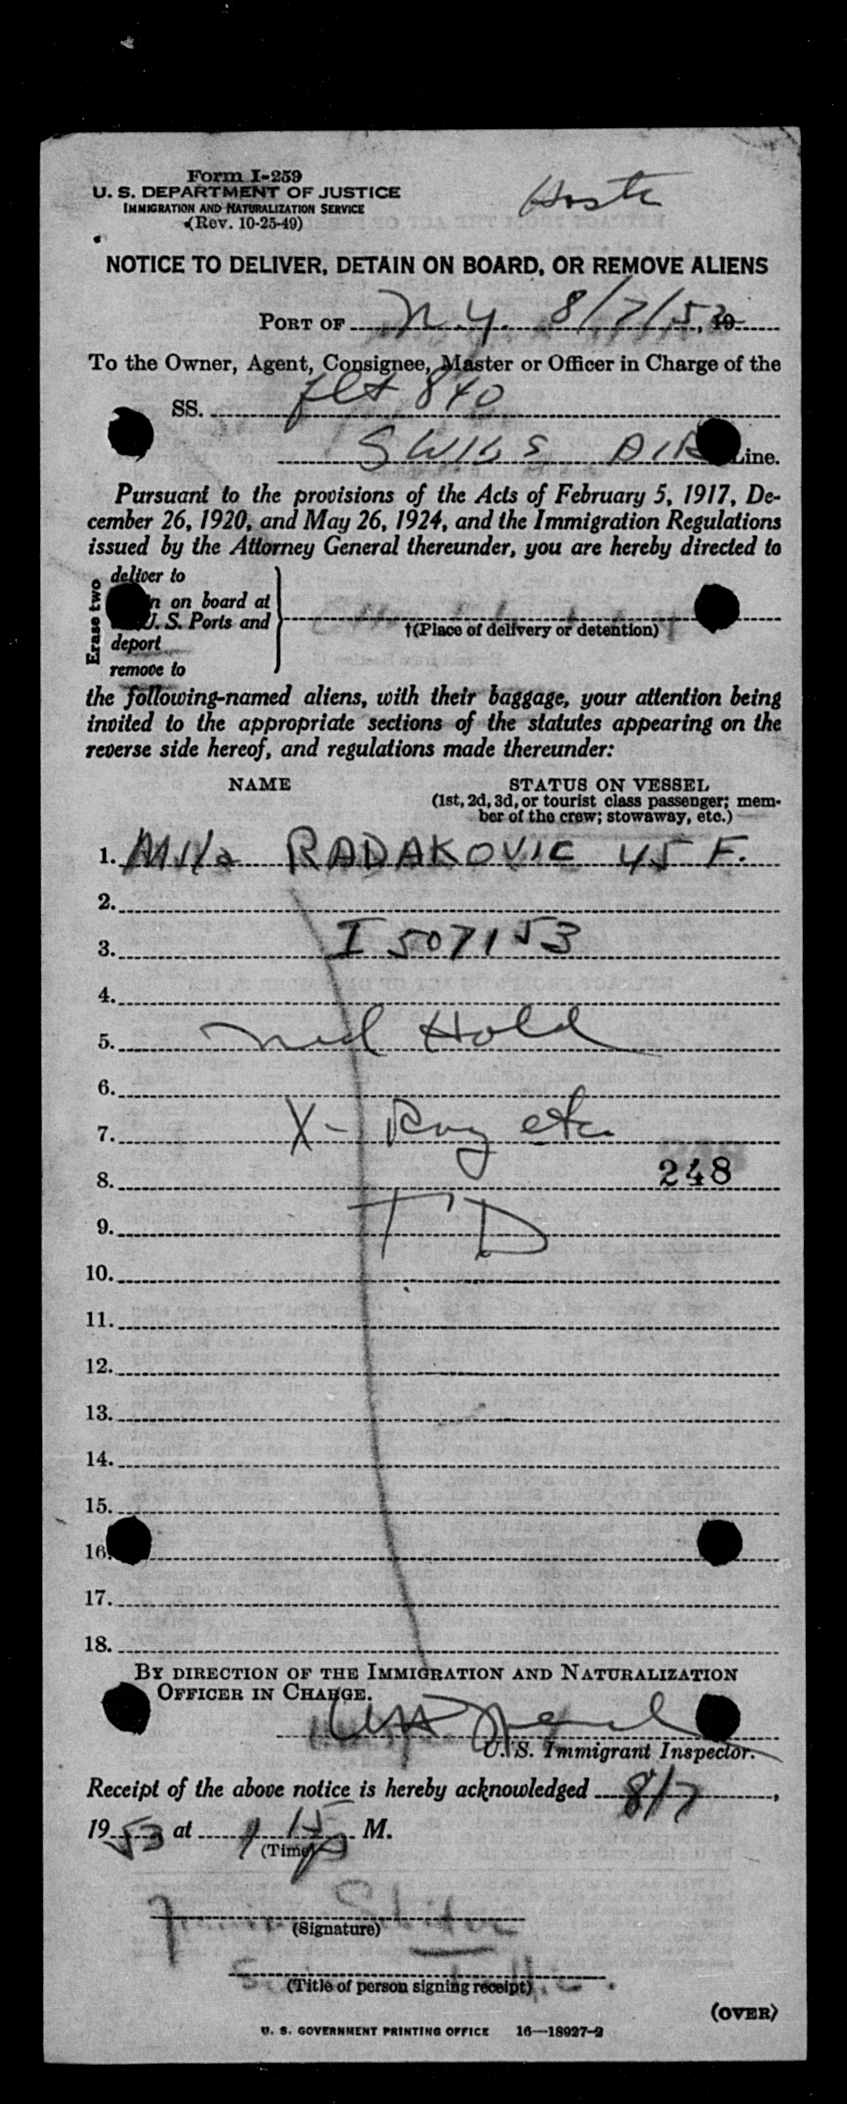 Form I-259
U. S. DEPARTMENT OF JUSTICE
IMMIGRATION AND NATURALIZATION SERVICE
(Rev. 10-25-49)
NOTICE TO DELIVER, DETAIN ON BOARD, OR REMOVE ALIENS
PORT OF N.Y. 8/7/53, 19
To the Owner, Agent, Consignee, Master or Officer in Charge of the
SS. flt 840
SWISS AIR Line.
Pursuant to the provisions of the Acts of February 5, 1917, De-
cember 26, 1920, and May 26, 1924, and the Immigration Regulations
issued by the Attorney General thereunder, you are hereby directed to
Erase two
deliver to
on board at
U. S. Ports and
deport
remove to
†(Place of delivery or detention)
the following-named aliens, with their baggage, your attention being
invited to the appropriate sections of the statutes appearing on the
reverse side hereof, and regulations made thereunder:
NAME STATUS ON VESSEL
(1st, 2d, 3d, or tourist class passenger; mem-
ber of the crew; stowaway, etc.)
1. Mila RADAKOVIC 45 F.
2.
3. I 507153
4.
5. Med Hold
6.
7. X-Ray etc
8. 248
9. TD
10.
11.
12.
13.
14.
15.
16.
17.
18.
BY DIRECTION OF THE IMMIGRATION AND NATURALIZATION
OFFICER IN CHARGE.
U. S. Immigrant Inspector.
Receipt of the above notice is hereby acknowledged 8/7,
1953 at 1 15 P M.
(Time)
(Signature)
(Title of person signing receipt)
(OVER)
U. S. GOVERNMENT PRINTING OFFICE 16—18927-2